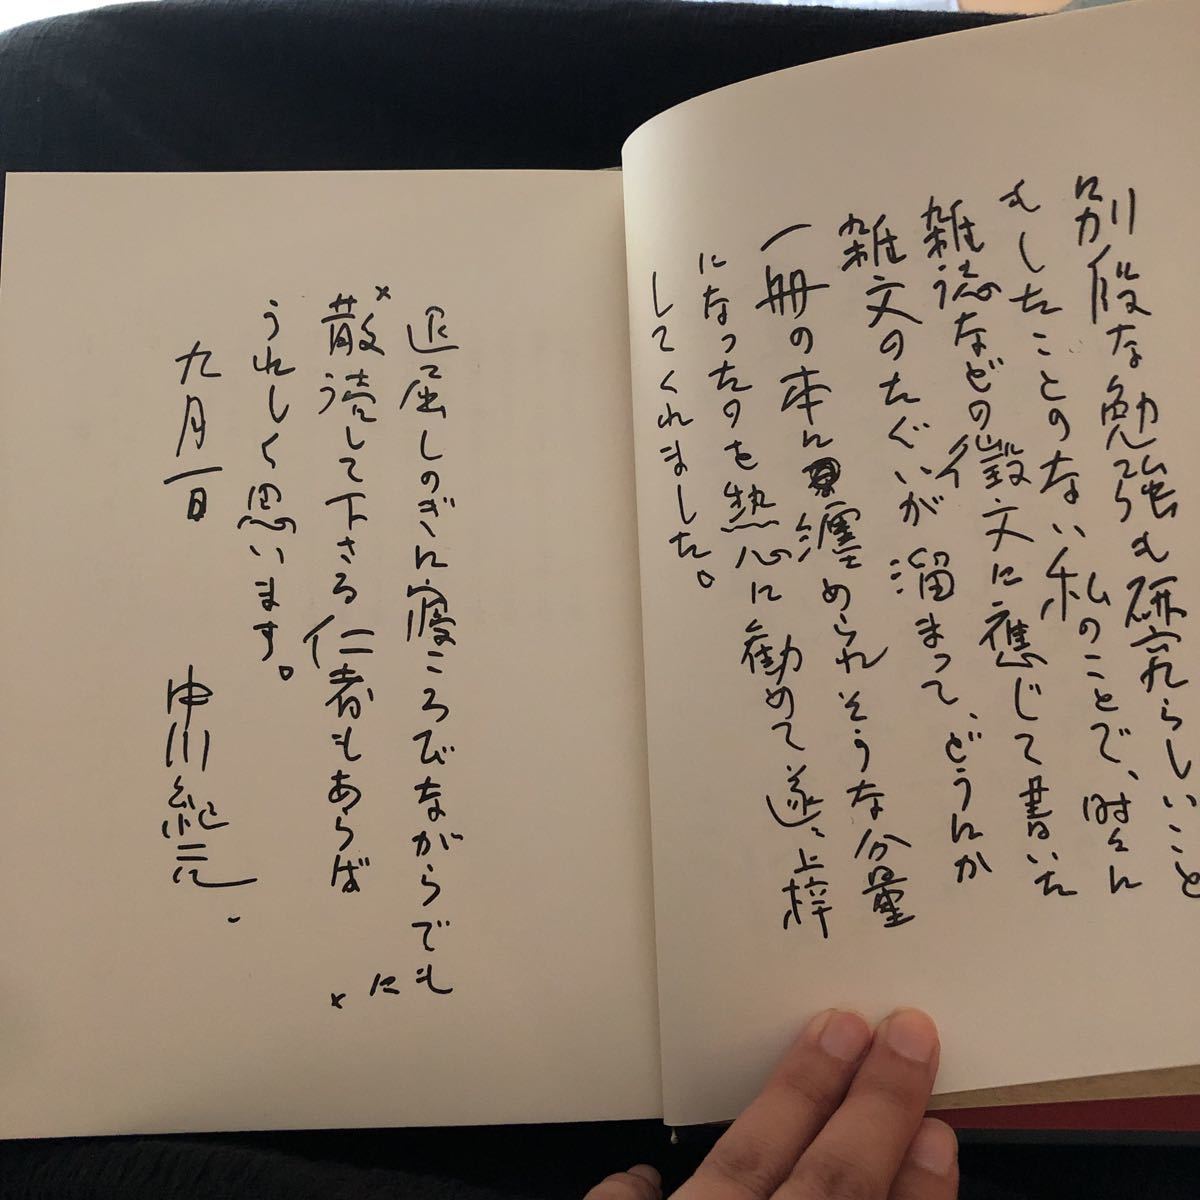 別段な勉強も研究らしいこと
もしたことのない私のことで、時々に
雑誌などの徴文に應じて書いた
雑文のたぐいが溜まって、どうにか
一冊の本に纏められそうな分量
になったのを熱心に勧めて遂に上梓
してくれました。
退屈しのぎに寝ころびながらでも
に
散読して下さる仁者もあらば
うれしく思います。
九月一日
中川紀元